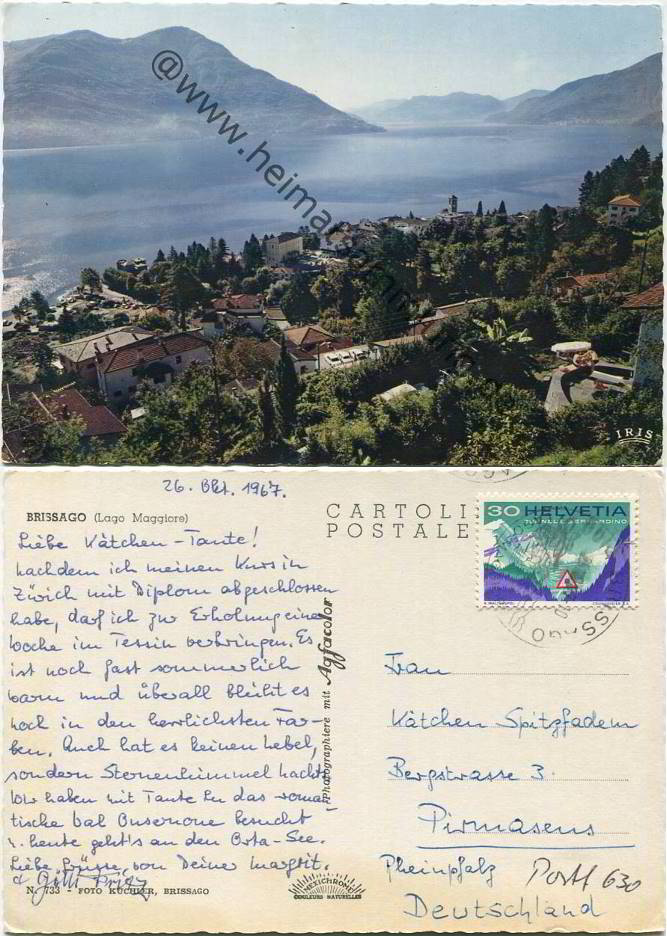 @www.heimat
IRIS
26. Okt. 1967.
BRISSAGO (Lago Maggiore)
CARTOLI
POSTALE
30 HELVETIA
TUNNEL S. BERNARDINO
COURVOISIER S.A.
BRISSAGO
Liebe Kätchen-Tante!
nachdem ich meinen Kurs in
Zürich mit Diplom abgeschlossen
habe, darf ich zur Erholung eine
Woche im Tessin verbringen. Es
ist noch fast sommerlich
warm und überall blüht es
noch in den herrlichsten Far-
ben. Auch hat es keinen Nebel,
sondern Sternenhimmel nachts
Wir haben mit Tante das roman-
tische Val Onsernone besucht
heute geht's an den Orta-See.
Liebe Grüsse, von Deiner Margrit.
Photographiere mit Agfacolor
Frau
Kätchen Spitzfadem
Bergstrasse 3.
Pirmasens
Rheinpfalz Postf 630
Deutschland
N. 733 - FOTO KÜCHLER, BRISSAGO
MEXICHROME
COULEURS NATURELLES